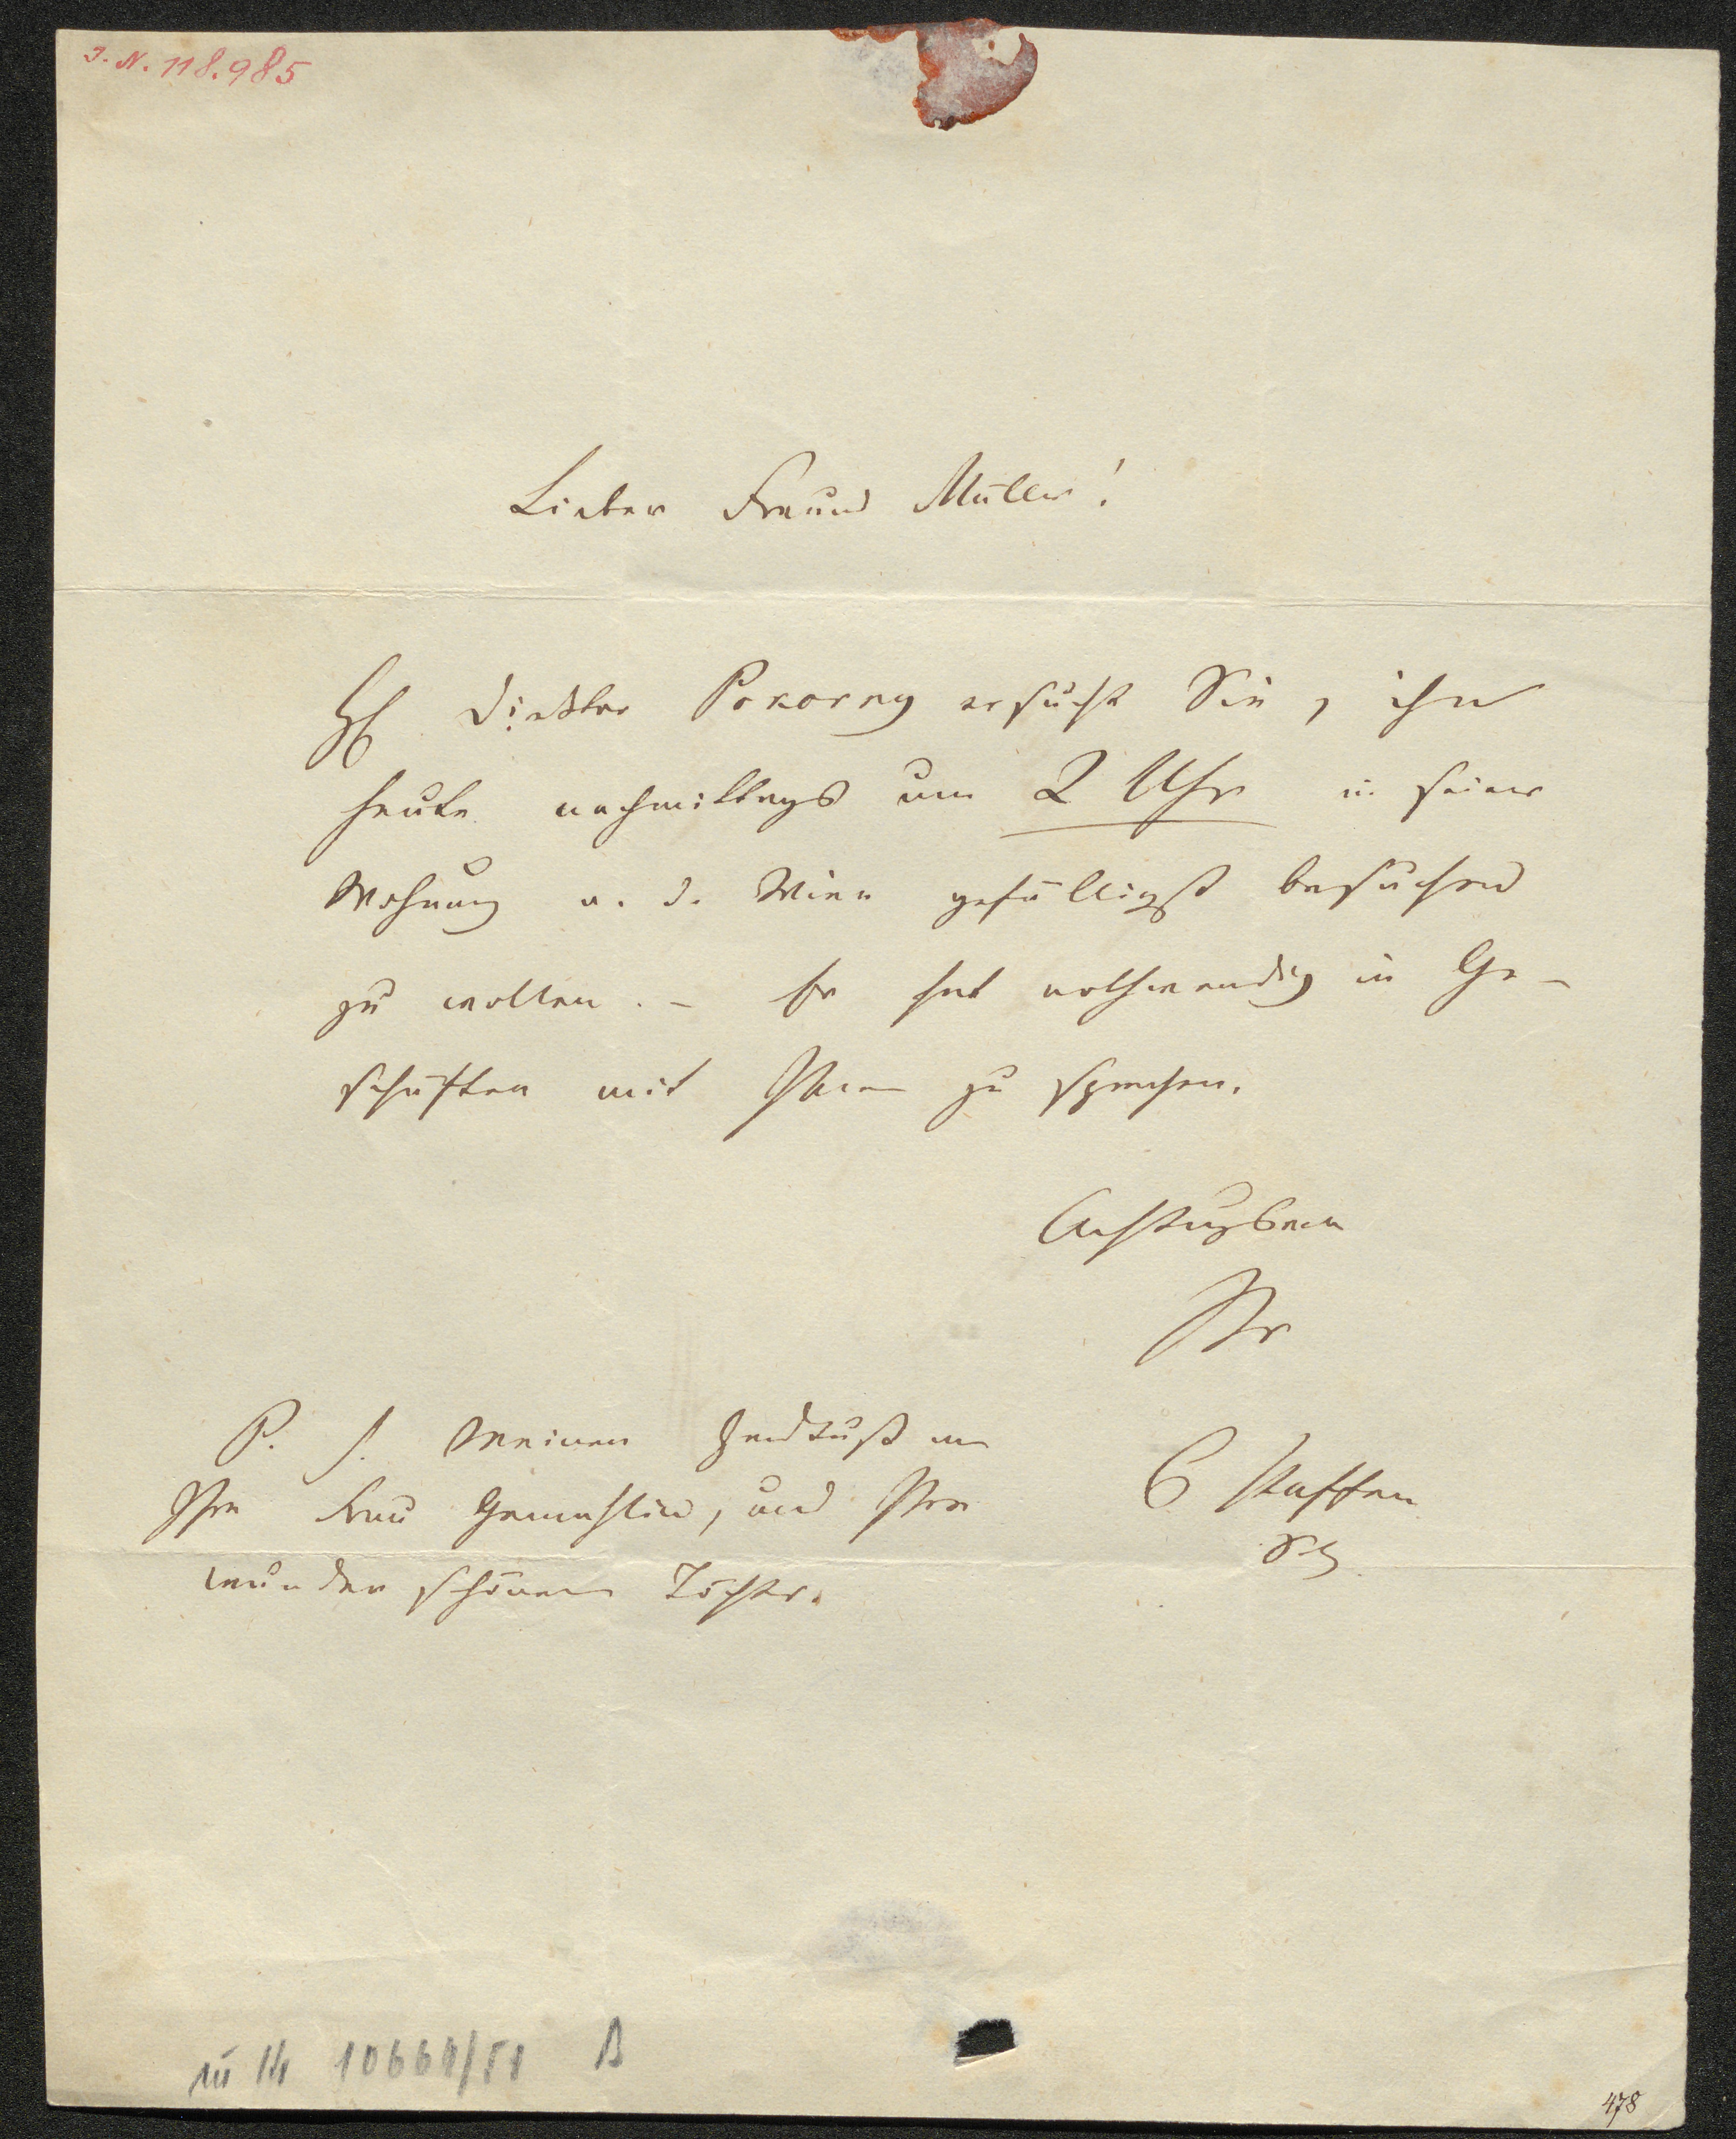 I. N. 118.985
Lieber Freund Müller!
H Direktor Pokorny ersucht Sie, ihn
heute nachmittags um 2 Uhr in seiner
Wohnung a. d. Wien gefälligst besuchen
zu wollen. – Er hat nothwendig in Ge-
schäften mit Ihnen zu sprechen.
Achtungsvoll
Ihr
P. S. Meinen Handkuß an
Ihre Frau Gemahlin, und Ihre
wunder schönen Töchter.
C Staffen
478